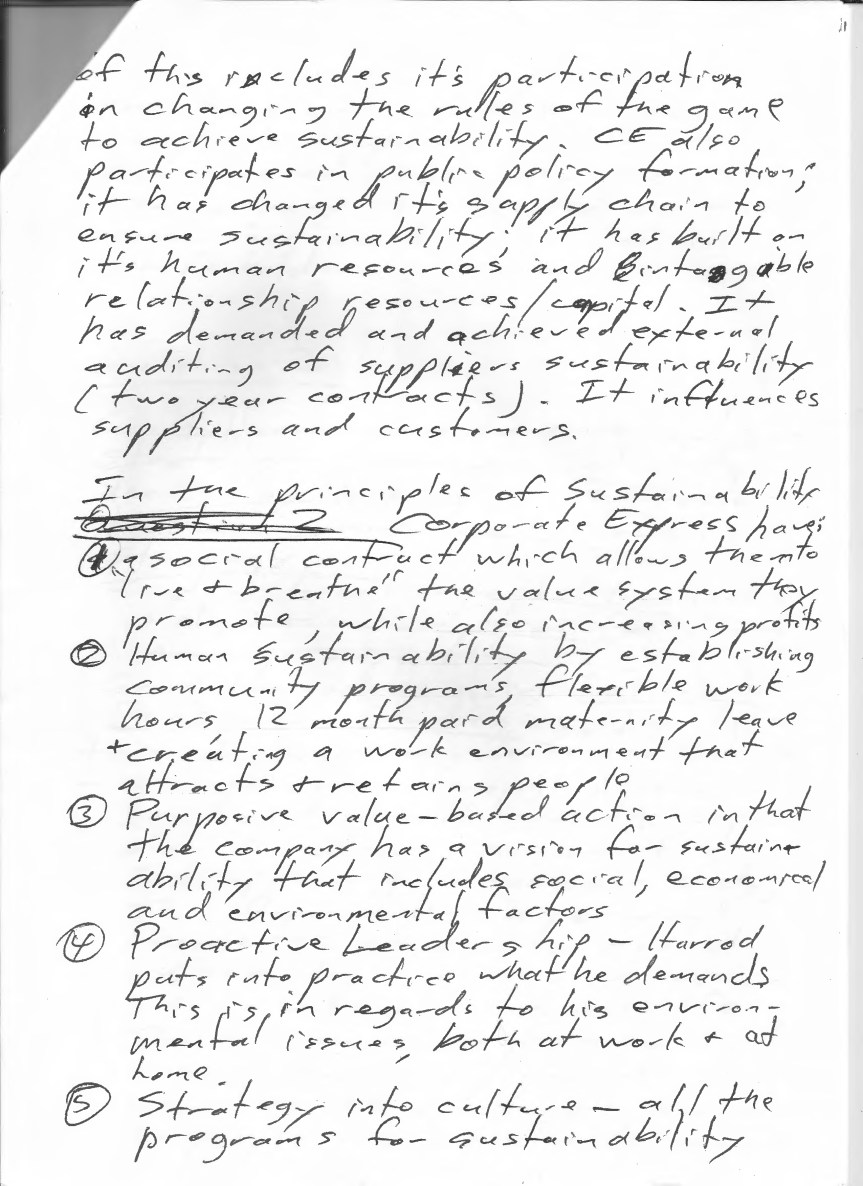 of this includes it's participation
in changing the rules of the game
to achieve sustainability. CE also
participates in public policy formation;
it has changed it's supply chain to
ensure sustainability; it has built on
it's human resources and intangable
relationship resources/capital. It
has demanded and achieved external
auditing of suppliers sustainability
(two year contracts). It influences
suppliers and customers.
In the principles of Sustainability
Question 2 Corporate Express have;
① a social contract which allows them to
"live + breathe" the value system they
promote, while also increasing profits
② Human Sustainability by establishing
community programs, flexible work
hours, 12 month paid maternity leave
+ creating a work environment that
attracts + retains people
③ Purposive value-based action in that
the company has a vision for sustain-
ability that includes social, economical
and environmental factors
④ Proactive Leadership – Harrod
puts into practice what he demands
This is in regards to his environ-
mental issues, both at work + at
home.
⑤ Strategy into culture – all the
programs for sustainability